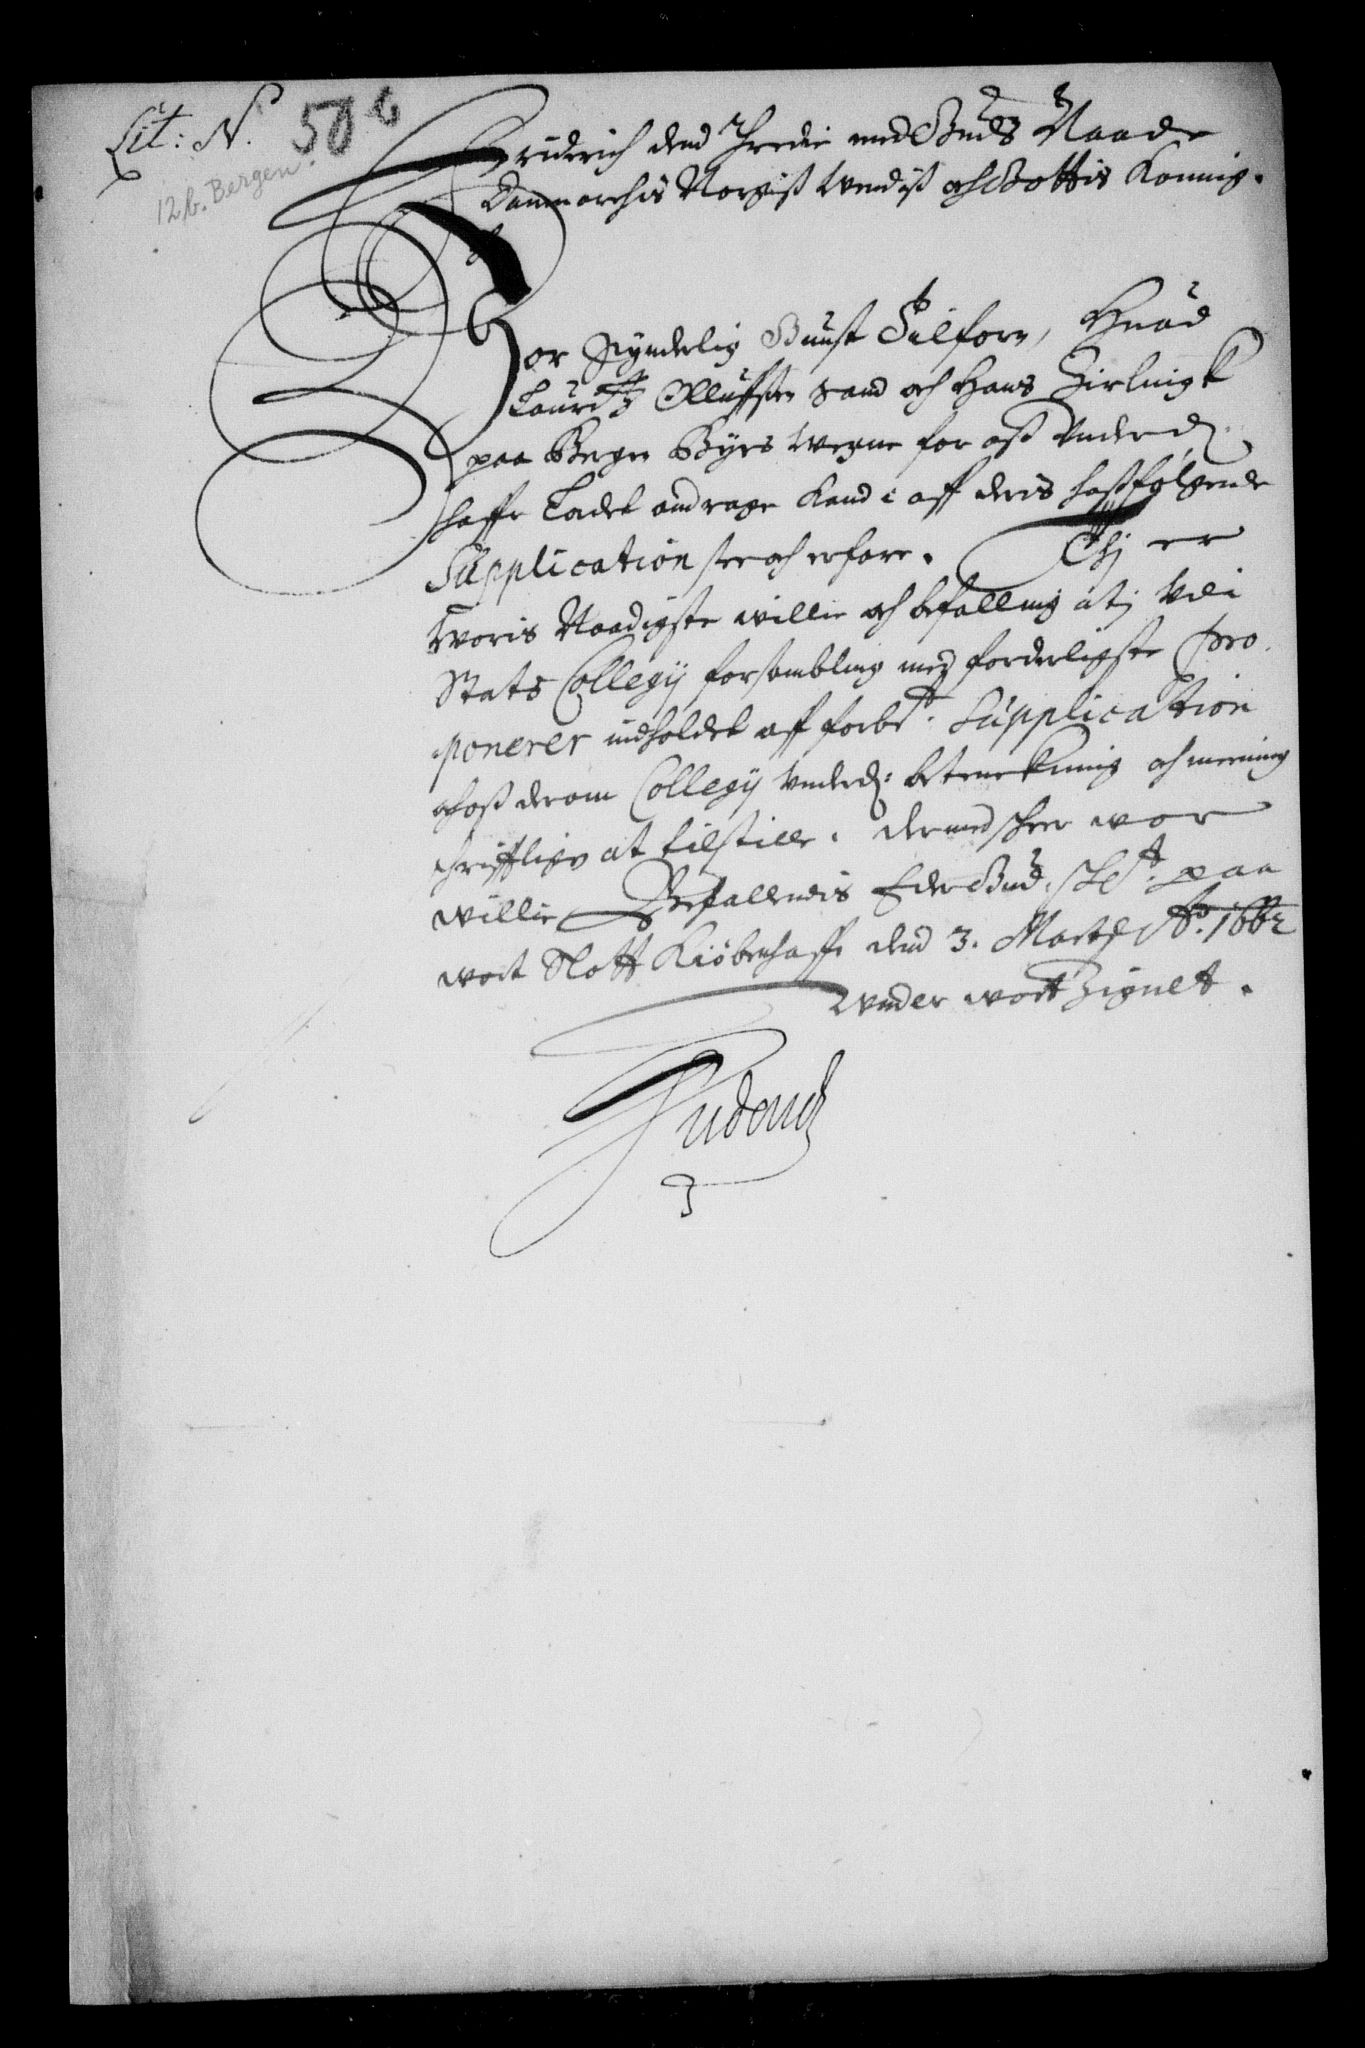 Lit: N. 50 b
12b. Bergen
Friderich dend Tredie med Guds Naade
Danmarchis Norgis Wendis och Gottis Konning.
Vor synderlig Gunst Tilforn, Huad
Lauritz Olluffsen Sand och Hans
paa Bergen Byes wegne for oss Underd.
haffr Ladet andrage Kand i aff deris hossfølgende
Supplication see och erfare. Thj er
Woris Naadigste willie och befalling atj Udi
Stats Collegij forsambling med forderligste pro
ponerer indholdet aff forbte. Supplication
och oss derom Collegij Underd: betenckning och meening
schrifftligen at tilstille. dermed scheer wor
willie Befallendis Eder Gud. paa
wort Slott Kiøbenhaffn dend 3. Martij Ao. 1662
Under wort Zignet.
Friderich
3